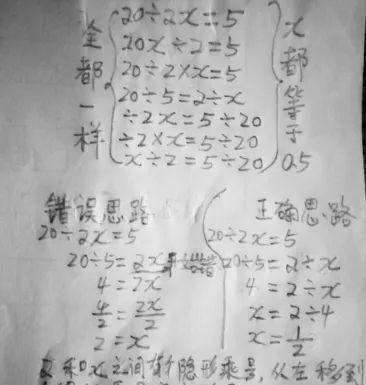 全都一样
20÷2x=5
20x÷2=5
20÷2×x=5
20÷5=2÷x
÷2x=5÷20
÷2×x=5÷20
x÷2=5÷20
x都等于0.5
错误思路
20÷2x=5
20÷5=2x开始错
4=2x
4/2=2x/2
2=x
正确思路
20÷2x=5
20÷5=2÷x
4=2÷x
x=2÷4
x=1/2
2和x之间有个隐形乘号,从左移到